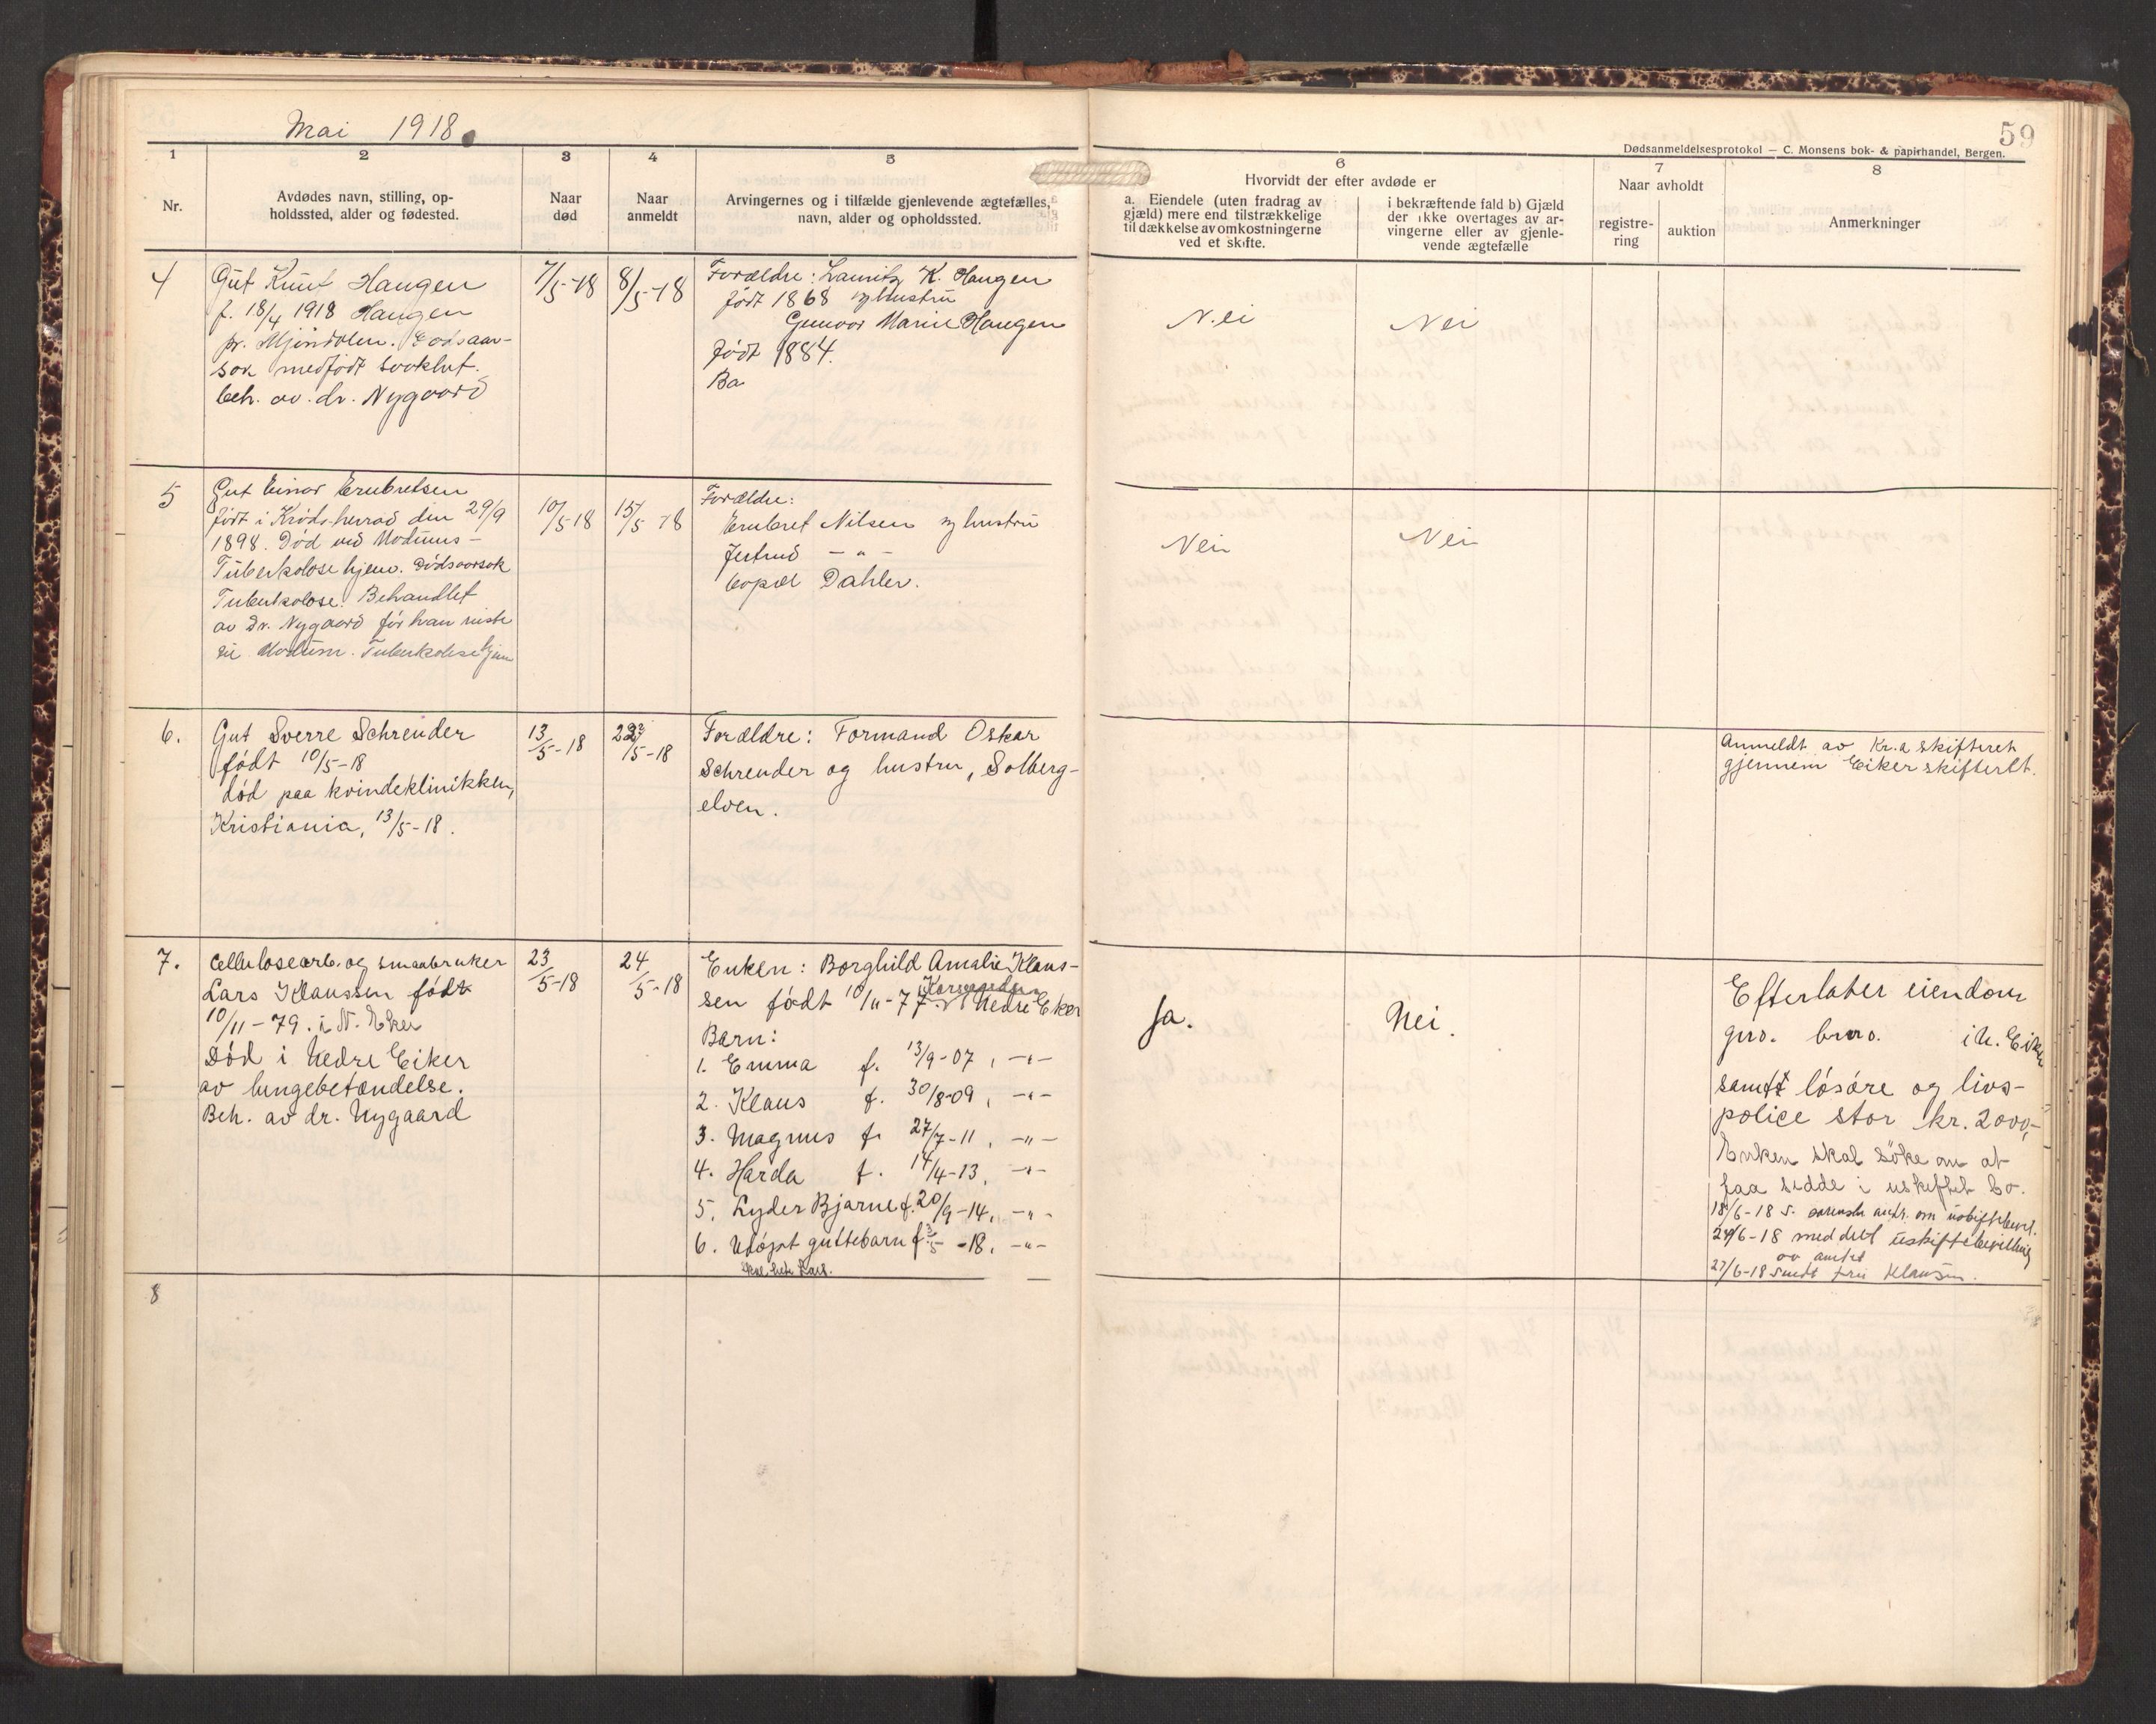 Mai 1918.
59
Dødsanmeldelsesprotokol — C. Monsens bok- & papirhandel, Bergen.
1
2
3
4
5
6
7
8
Nr.
Avdødes navn, stilling, op-
holdssted, alder og fødested.
Naar
død
Naar
anmeldt
Arvingernes og i tilfælde gjenlevende ægtefælles,
navn, alder og opholdssted.
Hvorvidt der efter avdøde er
a. Eiendele (uten fradrag av
gjæld) mere end tilstrækkelige
til dækkelse av omkostningerne
ved et skifte.
i bekræftende fald b) Gjæld
der ikke overtages av ar-
vingerne eller av gjenle-
vende ægtefælle
Naar avholdt
registre-
ring
auktion
Anmerkninger
4
Gut Knut Haugen
f. 18/4 1918 Haugen
pr. Mjøndalen. Dødsaar-
sak medfødt svakhet.
beh. av. dr. Nygaard
7/5-18
8/5-18
Forældre: Lauritz K. Haugen
født 1868 og hustru
Gunvor Marie Haugen
født 1884.
Ba
Nei
Nei
5
Gut Einar Erubretsen
født i Krøds-herrad den 29/9
1898. Død ved Modums-
Tuberkolosehjem. Dødsaarsak
Tuberkolose. Behandlet
av Dr. Nygaard før han reiste
til Modum. Tuberkolosehjem
10/5-18
15/5-18
Forældre:
Erubret Nilsen og hustru
Jertrud — " —
bopæl Dahler.
Nei
Nei
6.
Gut Sverre Schreuder
født 10/5-18
død paa kvindeklinikken,
Kristiania, 13/5-18.
13/5-18
23/5-18
Forældre: Formand Oskar
Schreuder og hustru, Solberg-
elven.
Anmeldt av Kr.a skifteret
gjennem Eiker skifteret.
7.
Cellulosearb. og smaabruker
Lars Klaussen født
10/11-79. i N. Eker
Død i Nedre Eiker
av lungebetændelse.
Beh. av dr. Nygaard
23/5-18
24/5-18
Enken: Borghild Amalie Klaus-
sen født 10/11-77. Nedre Eker
Barn:
1. Emma f. 13/9-07, — " —
2. Klaus f. 30/8-09, — " —
3. Magnus f. 27/7-11, — " —
4. Harda f. 14/4-13, — " —
5. Lyder Bjarne f. 20/9-14, — " —
6. Udøpt guttebarn f. 3/5-18. — " —
skal hete Lars.
Ja.
Nei.
Efterlater eiendom
gno. brno. i N. Eiker
samt løsøre og livs-
police stor kr. 2000,-
Enken skal søke om at
faa sidde i uskiftet bo.
18/6-18 s. om uskiftebevil.
24/6-18 meddelt uskiftebevilling
av amtet
27/6-18 sendt fru Klausen.
8